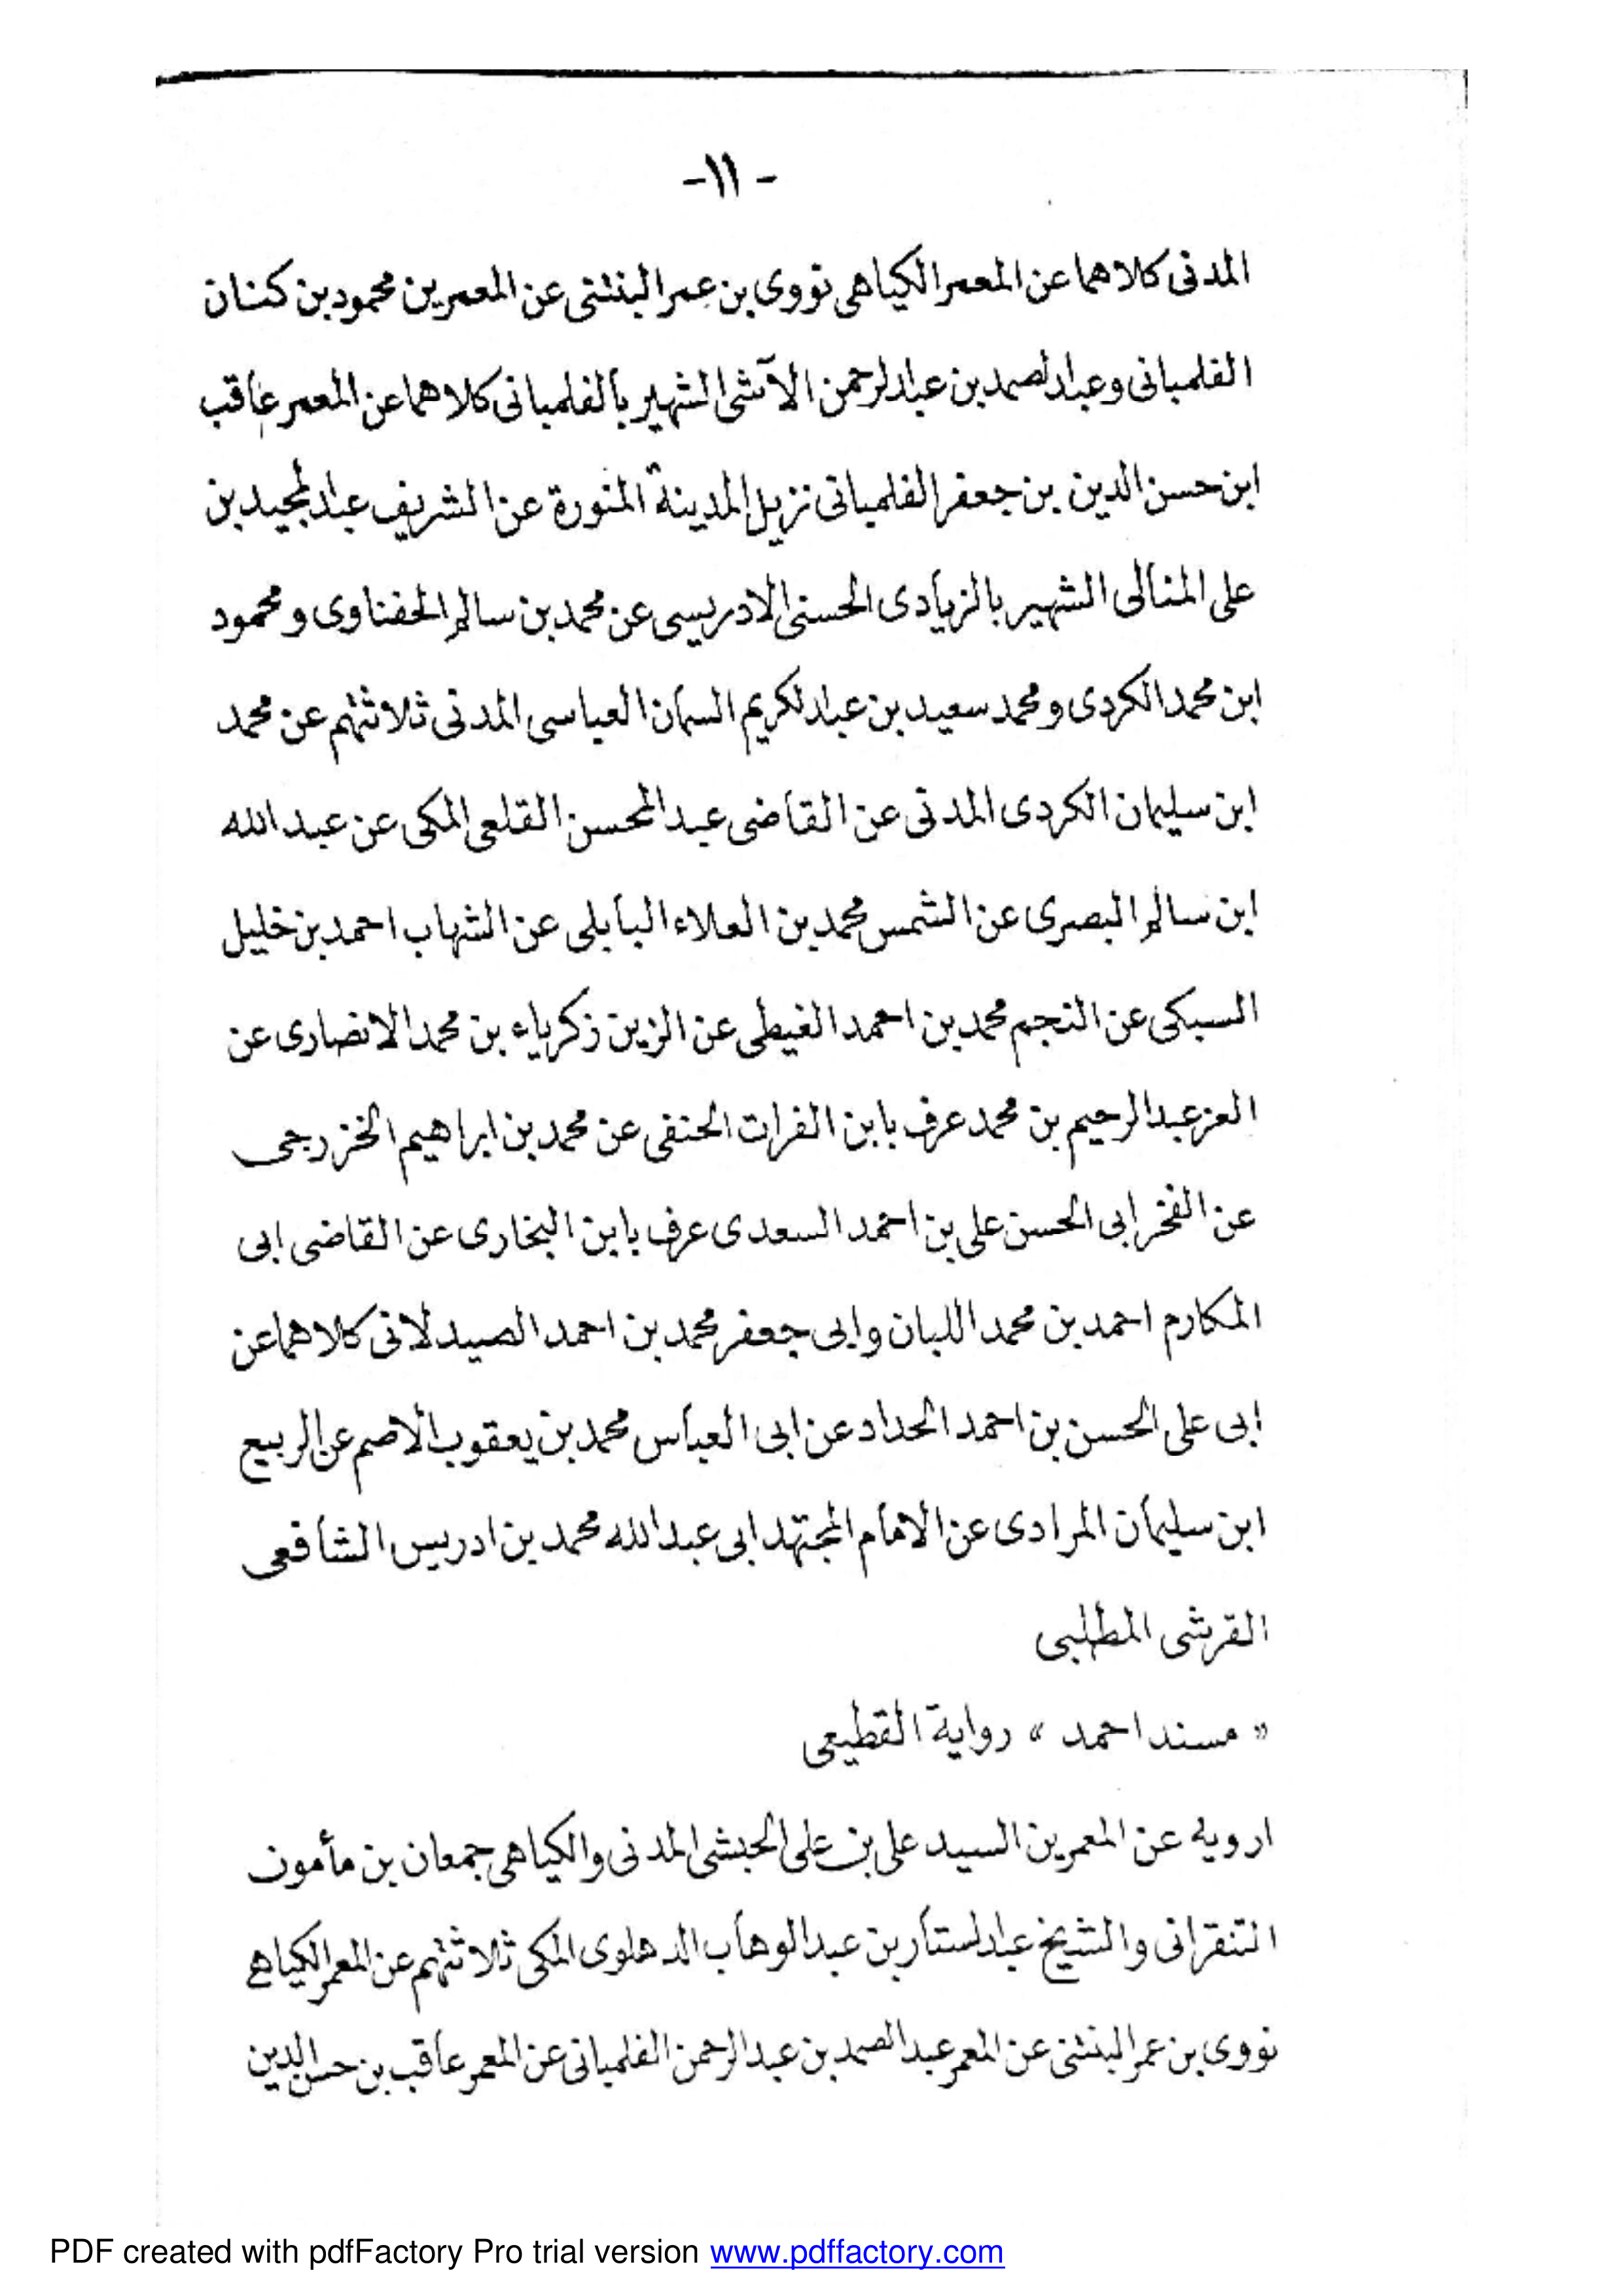 - ١١ -
المدنى كلاهما عن المعمر الكياهى نووى بن عمر البنتنى عن المعمرين محمود بن كنان
الفلمبانى وعبد الصمد بن عبد الرحمن الآشى الشهير بالفلمبانى كلاهما عن المعمر عاقب
ابن حسن الدين بن جعفر الفلمبانى نزيل المدينة المنورة عن الشريف عبد المجيد بن
على المنالى الشهير بالزيادى الحسنى الادريسى عن محمد بن سالم الحفناوى و محمود
ابن محمد الكردى و محمد سعيد بن عبد الكريم السمان العباسى المدنى ثلاثتهم عن محمد
ابن سليمان الكردى المدنى عن القاضى عبد المحسن القلعى المكى عن عبد الله
ابن سالم البصرى عن الشمس محمد بن العلاء البابلى عن الشهاب احمد بن خليل
السبكى عن النجم محمد بن احمد الغيطى عن الزين زكرياء بن محمد الانصارى عن
العز عبد الرحيم بن محمد عرف بابن الفرات الحنفى عن محمد بن ابراهيم الخزرجى
عن الفخر ابى الحسن على بن احمد السعدى عرف بابن البخارى عن القاضى ابى
المكارم احمد بن محمد اللبان وابى جعفر محمد بن احمد الصيدلانى كلاهما عن
ابى على الحسن بن احمد الحداد عن ابى العباس محمد بن يعقوب الاصم عن الربيع
ابن سليمان المرادى عن الامام المجتهد ابى عبد الله محمد بن ادريس الشافعى
القرشى المطلبى
« مسند احمد » رواية القطيعى
ارويه عن المعمرين السيد على بن على الحبشى المدنى والكياهى جمعان بن مأمون
التنقرانى والشيخ عبد الستار بن عبد الوهاب الدهلوى المكى ثلاثتهم عن المعمر الكياهى
نووى بن عمر البنتنى عن المعمر عبد الصمد بن عبد الرحمن الفلمبانى عن المعمر عاقب بن حسن الدين
PDF created with pdfFactory Pro trial version www.pdffactory.com